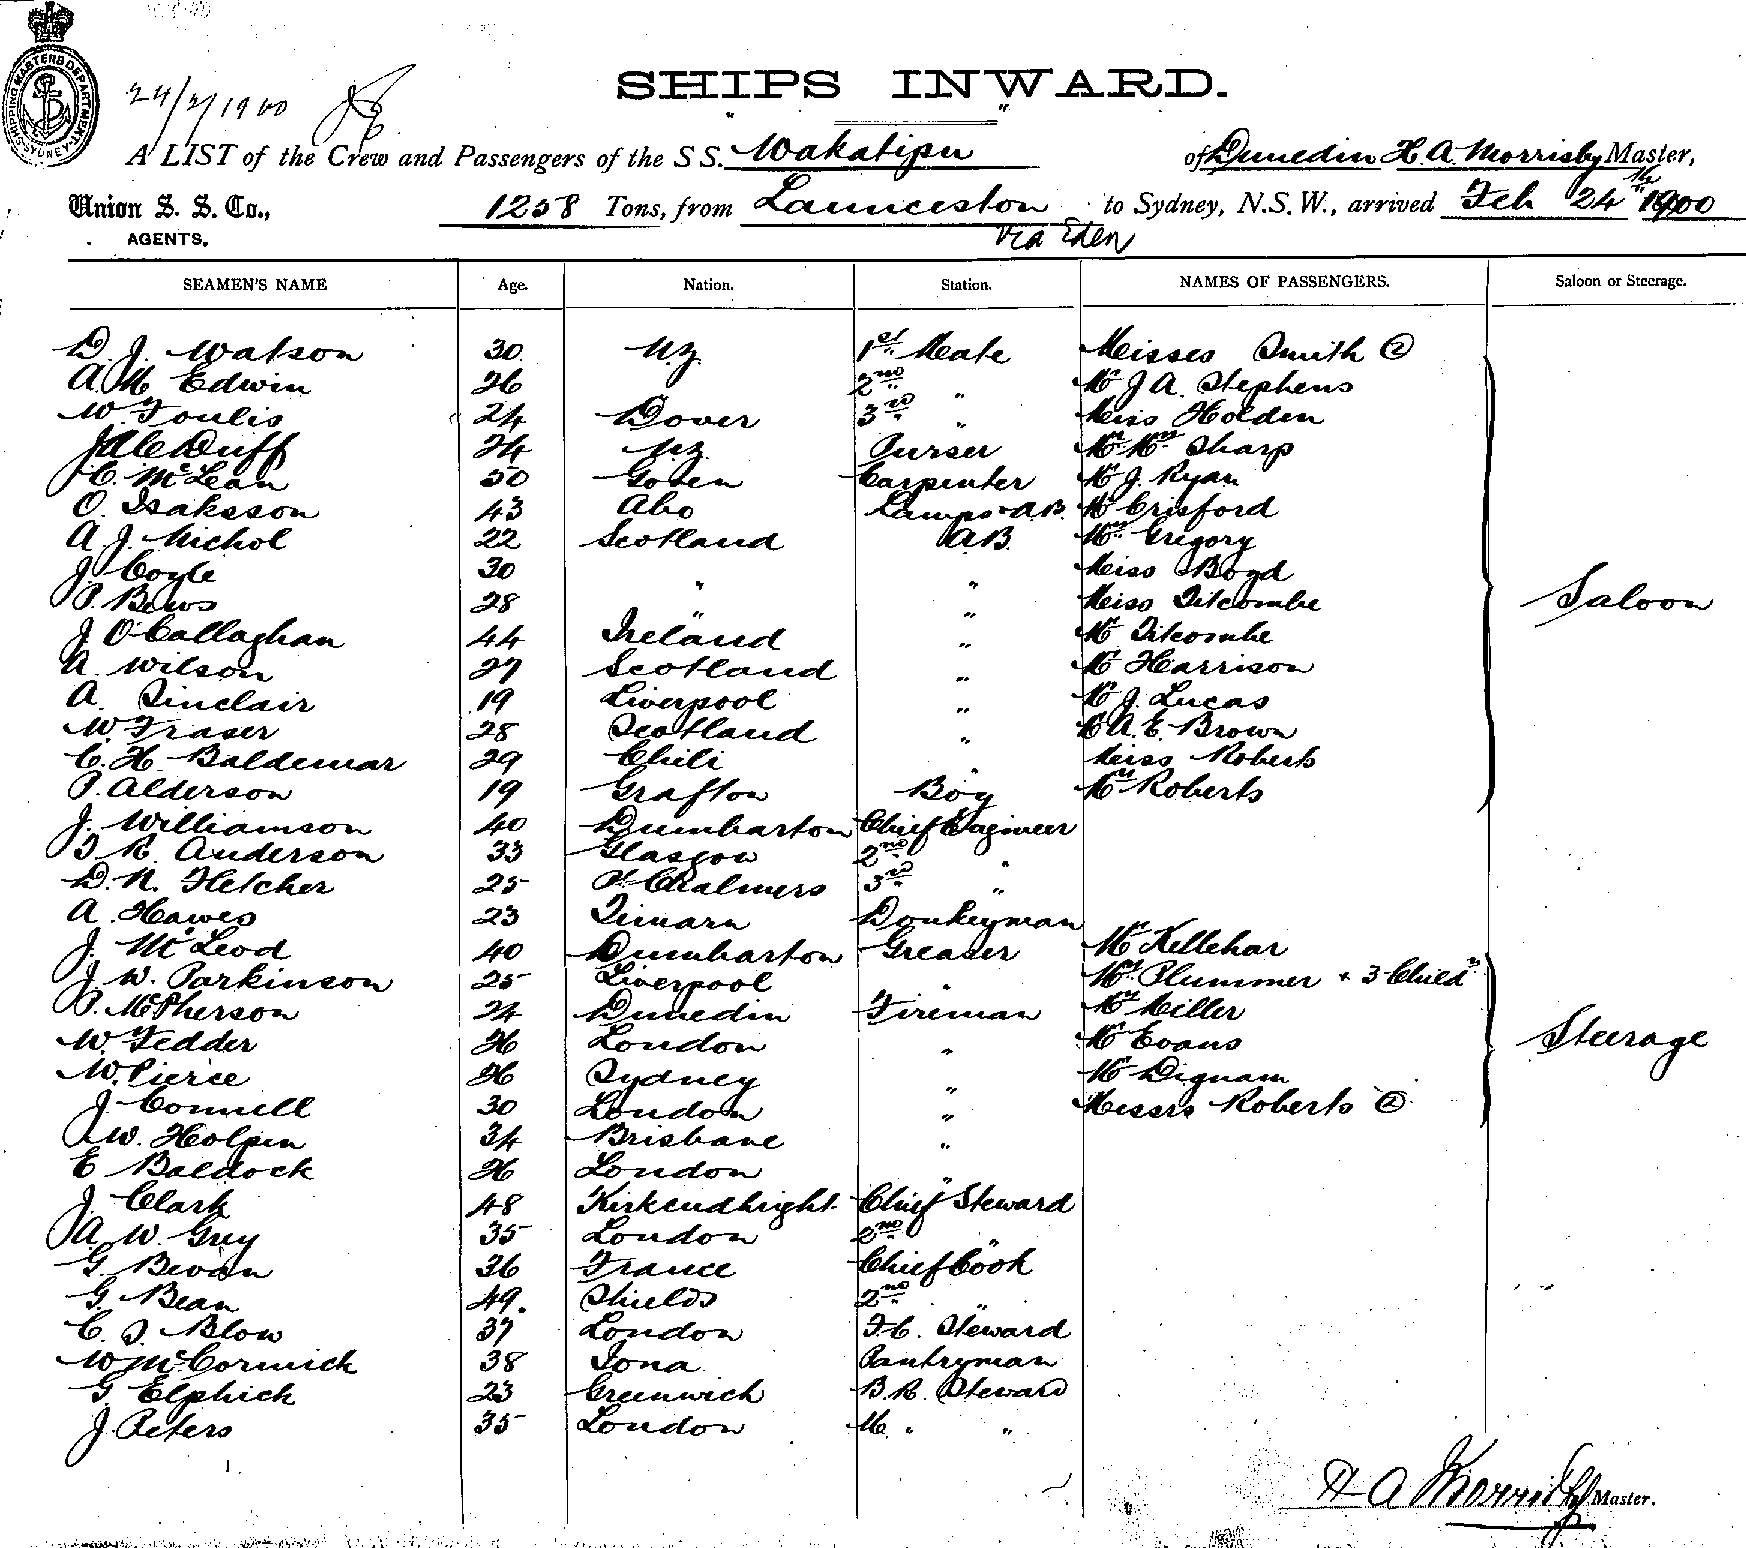 SHIPPING MASTERS DEPARTMENT SYDNEY
24/2/1900
SHIPS INWARD.
A LIST of the Crew and Passengers of the S S. Wakatipu of Dunedin H. A. Morrisby Master,
Union S. S. Co., 1258 Tons, from Launceston to Sydney, N.S.W., arrived Feb 24th 1900
AGENTS. Via Eden
SEAMEN'S NAME Age. Nation. Station. NAMES OF PASSENGERS. Saloon or Steerage.
D. J. Watson 30 N.Z. 1st Mate Misses Smith (2)
A. M Edwin 26 2nd " Mr J A. Stephens
W. Foulis 24 Dover 3rd " Miss Holden
Duff 24 N.Z. Purser Mr Mrs Sharp
C. McLean 50 Carpenter Mr J. Ryan
O. Isaksson 43 Abo Lamps & A.B. Mr Crisford
A J. Nichol 22 Scotland A.B. Mrs Gregory
J. Coyle 30 " " Miss Boyd
P. Bews 28 " " Miss Titcombe Saloon
J O'Callaghan 44 Ireland " Mr Titcombe
A. Wilson 27 Scotland " Mr Harrison
A. Sinclair 19 Liverpool " Mr J. Lucas
W. Fraser 28 Scotland " A. E. Brown
C. H. Baldemar 29 Chili " Miss Roberts
P. Alderson 19 Grafton Boy Mrs Roberts
J. Williamson 40 Dumbarton Chief Engineer
T R. Anderson 33 Glasgow 2nd "
D. N. Fletcher 25 Pt Chalmers 3rd "
A. Hawes 23 Timaru Donkeyman
J. McLeod 40 Dumbarton Greaser Mr Kellehar
J. W. Parkinson 25 Liverpool " Mrs Plummer + 3 Childn
P. McPherson 24 Dunedin Fireman Mrs Miller
W. Fedder 26 London " Mr Evans Steerage
W. Pierce 26 Sydney " Mr Dignam
J. Connell 30 London " Messrs Roberts (2)
W. Holpin 34 Brisbane "
E Baldock 26 London "
J Clark 48 Kirkcudbright Chief Steward
A W. Guy 35 London 2nd "
G. Bevan 36 France Chief Cook
G. Bean 49. Shields 2nd "
C. J. Blow 37 London F.C. Steward
W McCormick 38 Iona Pantryman
G. Elphick 23 Greenwich B.R. Steward
J. Peters 35 London M. " "
H A Morrisby Master.